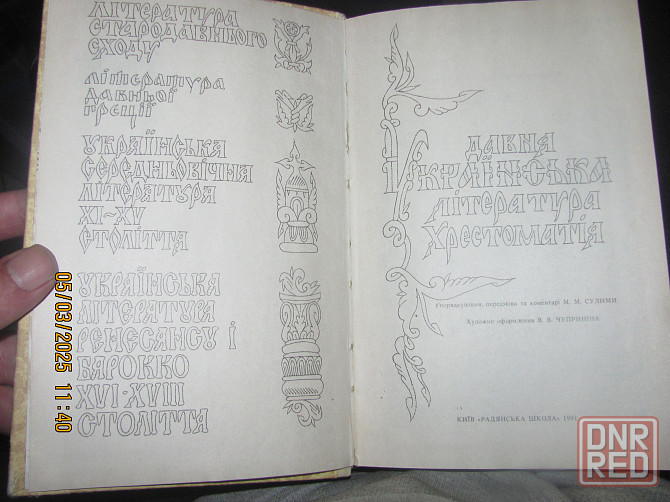 ЛІТЕРАТУРА
СТАРОДАВНЬОГО
СХОДУ
ЛІТЕРАТУРА
ДАВНЬОЇ
ГРЕЦІЇ
УКРАЇНСЬКА
СЕРЕДНЬОВІЧНА
ЛІТЕРАТУРА
XI–XV
СТОЛІТТЯ
УКРАЇНСЬКА
ЛІТЕРАТУРА
РЕНЕСАНСУ І
БАРОККО
XVI-XVIII
СТОЛІТТЯ
ДАВНЯ
УКРАЇНСЬКА
ЛІТЕРАТУРА
ХРЕСТОМАТІЯ
Упорядкування, передмова та коментарі М. М. СУЛИМИ
Художнє оформлення В. В. ЧУПРИНІНА
КИЇВ «РАДЯНСЬКА ШКОЛА» 1991
05/03/2025 11:40
DNR
RED